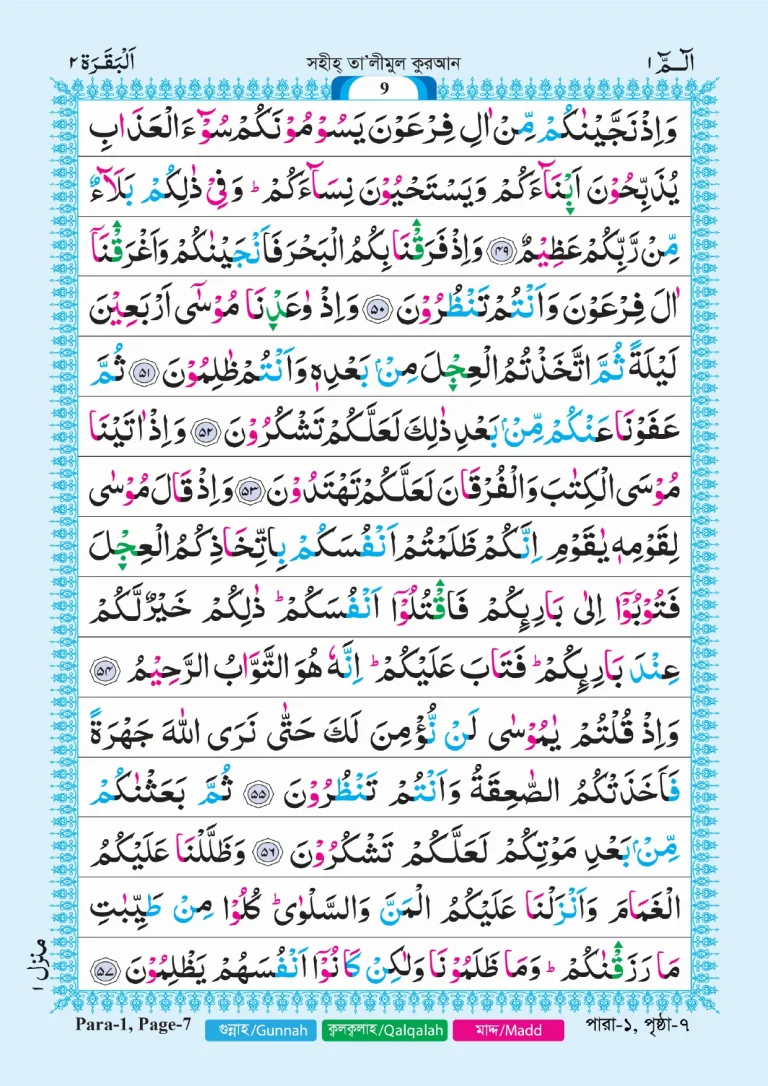 اَلْبَقَرَة ٢ সহীহ্ তা'লীমুল কুরআন الٓـمّٓ ١
9
وَاِذْ نَجَّيْنٰكُمْ مِّنْ اٰلِ فِرْعَوْنَ يَسُوْمُوْنَكُمْ سُوْٓءَ الْعَذَابِ
يُذَبِّحُوْنَ اَبْنَآءَكُمْ وَيَسْتَحْيُوْنَ نِسَآءَكُمْ ؕ وَفِىْ ذٰلِكُمْ بَلَآءٌ
مِّنْ رَّبِّكُمْ عَظِيْمٌ ۴۹ وَاِذْ فَرَقْنَا بِكُمُ الْبَحْرَ فَاَنْجَيْنٰكُمْ وَاَغْرَقْنَآ
اٰلَ فِرْعَوْنَ وَاَنْتُمْ تَنْظُرُوْنَ ۵۰ وَاِذْ وٰعَدْنَا مُوْسٰٓى اَرْبَعِيْنَ
لَيْلَةً ثُمَّ اتَّخَذْتُمُ الْعِجْلَ مِنْۢ بَعْدِهٖ وَاَنْتُمْ ظٰلِمُوْنَ ۵۱ ثُمَّ
عَفَوْنَا عَنْكُمْ مِّنْۢ بَعْدِ ذٰلِكَ لَعَلَّكُمْ تَشْكُرُوْنَ ۵۲ وَاِذْ اٰتَيْنَا
مُوْسَى الْكِتٰبَ وَالْفُرْقَانَ لَعَلَّكُمْ تَهْتَدُوْنَ ۵۳ وَاِذْ قَالَ مُوْسٰى
لِقَوْمِهٖ يٰقَوْمِ اِنَّكُمْ ظَلَمْتُمْ اَنْفُسَكُمْ بِاتِّخَاذِكُمُ الْعِجْلَ
فَتُوْبُوْٓا اِلٰى بَارِئِكُمْ فَاقْتُلُوْٓا اَنْفُسَكُمْ ؕ ذٰلِكُمْ خَيْرٌ لَّكُمْ
عِنْدَ بَارِئِكُمْ ؕ فَتَابَ عَلَيْكُمْ ؕ اِنَّهٗ هُوَ التَّوَّابُ الرَّحِيْمُ ۵۴
وَاِذْ قُلْتُمْ يٰمُوْسٰى لَنْ نُّؤْمِنَ لَكَ حَتّٰى نَرَى اللّٰهَ جَهْرَةً
فَاَخَذَتْكُمُ الصّٰعِقَةُ وَاَنْتُمْ تَنْظُرُوْنَ ۵۵ ثُمَّ بَعَثْنٰكُمْ
مِّنْۢ بَعْدِ مَوْتِكُمْ لَعَلَّكُمْ تَشْكُرُوْنَ ۵۶ وَظَلَّلْنَا عَلَيْكُمُ
الْغَمَامَ وَاَنْزَلْنَا عَلَيْكُمُ الْمَنَّ وَالسَّلْوٰى ؕ كُلُوْا مِنْ طَيِّبٰتِ
مَا رَزَقْنٰكُمْ ؕ وَمَا ظَلَمُوْنَا وَلٰكِنْ كَانُوْٓا اَنْفُسَهُمْ يَظْلِمُوْنَ ۵۷
منزل ١
Para-1, Page-7 গুন্নাহ/Gunnah ক্বলক্বলাহ/Qalqalah মাদ্দ/Madd পারা-১, পৃষ্ঠা-৭